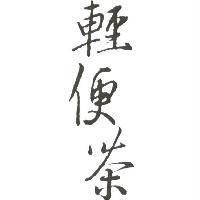 輕便茶